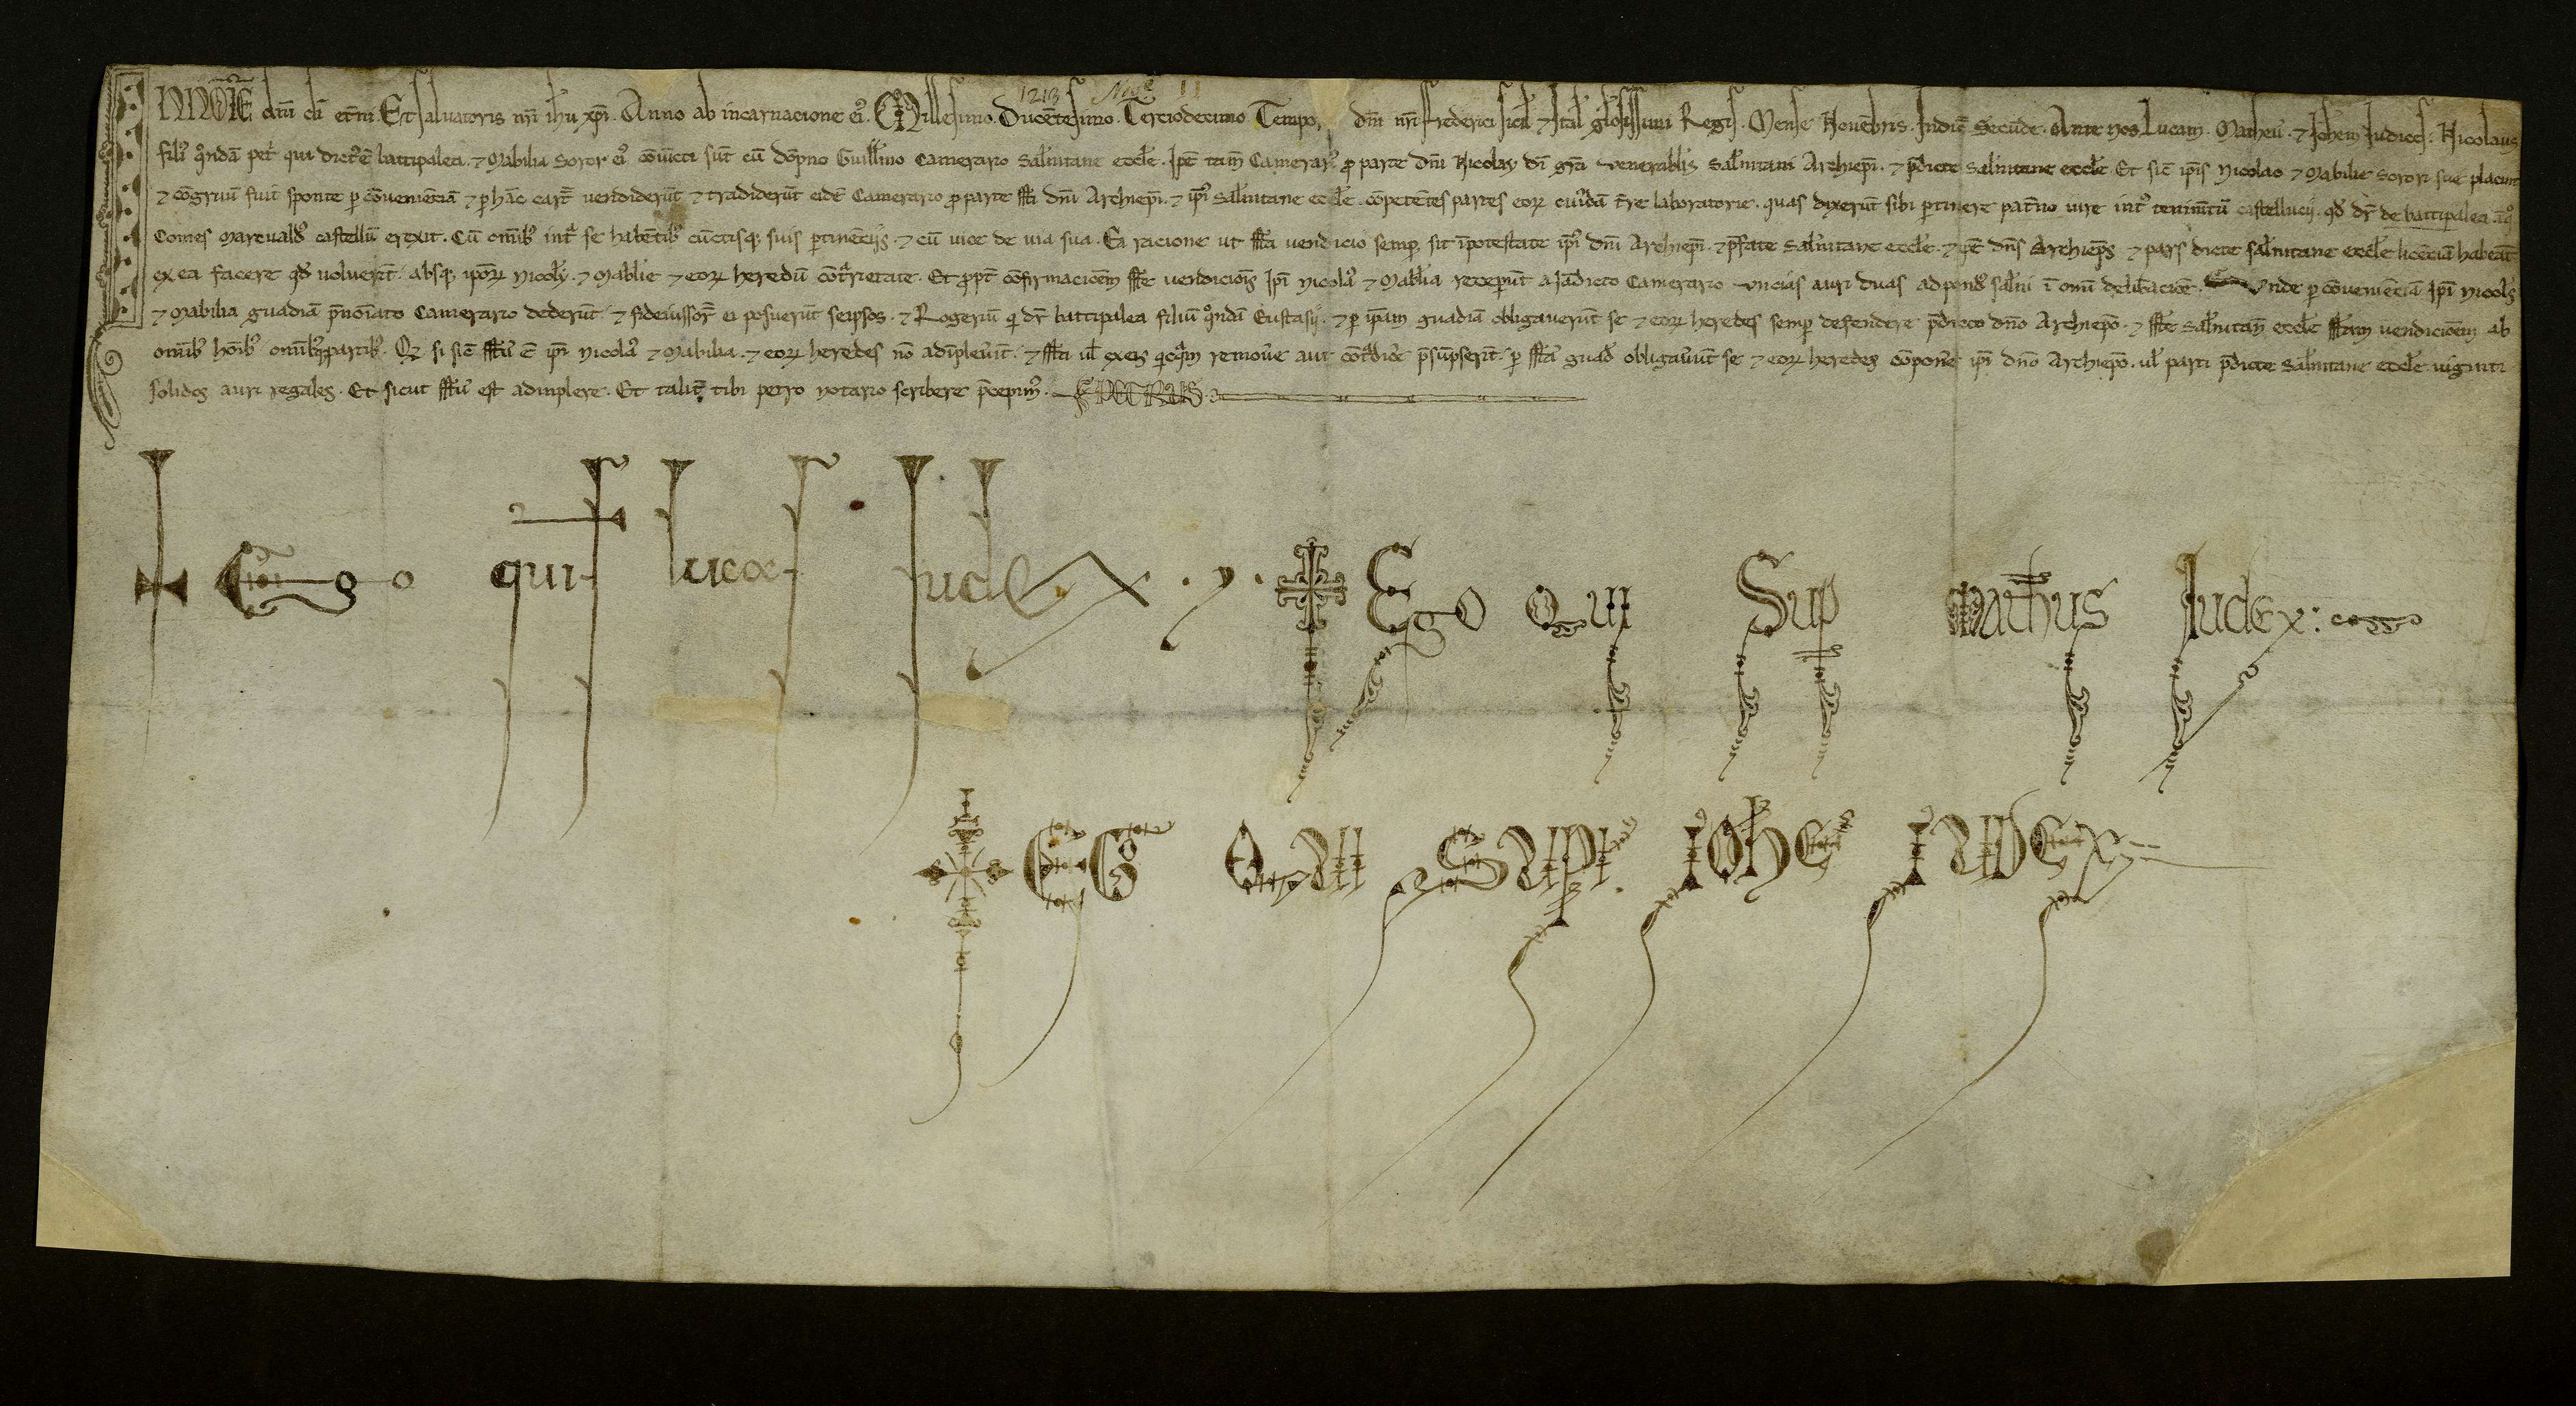 1213 Nove 11
IN NOĪE dn̄i dī et̄ni. Et saluatoris nr̄i ihū xp̄i. Anno ab incarnacione ei᾽. Millesimo. Ducētesimo. Terciodecimo Tempor dn̄i nr̄i Frederici sicil᾽ ⁊ ital᾽ gl̄osissimi Regis. Mense Nouēbris. Indic̄ Secūde. Ante nos Lucam. Matheū. ⁊ Joh̄em Judices. Nicolaus
fili᾽ q̄ndā pet᾽ qui dict᾽ ē battipalea. ⁊ Mabilia soror ei᾽ cōiūcti sūt cū dōpno Guill᾽mo Camerario Sal᾽nitane eccl᾽e. Ip̄e tam̄ Camerari᾽ p̱ parte dn̄i Nicolay dī gr̄a venerabil᾽is Sal᾽nitani Archiep̄i. ⁊ p̄dicte Sal᾽nitane eccl᾽e. Et sic̄ ip̄is Nicolao ⁊ Mabilie sorori sue placuit
⁊ cōgruū fuit sponte p̱ cōueniēciā ⁊ p̱ hāc cart̄ vendiderūt ⁊ tradiderūt eidē Camerario p̱ parte ss̄ti dn̄i Archiep̄i. ⁊ ip̄i᾽ Sal᾽nitane eccl᾽e. cōpetētes partes eorꝝ cui᾽dā t̄re laboratorie. quas dixerūt sibi p̱tinere pat̄no iure int᾽ tenim̄tū castellucij. qd᾽ dr̄ de battipalea
Comes Marcuald᾽ castellū erexit. Cū om̄ib᾽ int᾽ se habētib᾽ cūctisq᾽ suis p̱tinēcijs. ⁊ cū uice de uia sua. Ea racione ut ss̄ta uendicio semp̱ sit ī potestate ip̄i᾽ dn̄i Archiep̄i. ⁊ p̄fate Sal᾽nitane eccl᾽e. ⁊ ip̄e dn̄s Archiep̄s ⁊ pars dicte Sal᾽nitane eccl᾽e licēciā habeāt
ex ea facere qd᾽ uoluerīt. absq᾽ ip̄orꝝ Nicol᾽y. ⁊ Mabl᾽ie ⁊ eorꝝ heredū cōt᾽rietate. Et p̱pt᾽ cōfirmaciōem ss̄te uendiciōis Ip̄i Nicola᾽ ⁊ Mabl᾽ia receperūt a iādicto Camerario vncias auri duas ad pond᾽ sal᾽ni ī om̄i delib̄acioē. Vnde p̱ cōueniēciā Ip̄i Nicola᾽
⁊ Mabilia guadiā p̄noīato Camerario dederūt. ⁊ fideiussor̄ ei posuerūt seipsos. ⁊ Rogeriū q᾽ dr̄ battipalea filiū q̄ndā Eustasij. ⁊ p̱ ip̄am guadiā obligauerūt se ⁊ eorꝝ heredes semp̱ defendere p̄dicto dn̄o Archiep̄o. ⁊ ss̄te Sal᾽nitan̄ eccl᾽e ss̄tam uendiciōem ab
om̄ib᾽ hoīb᾽ om̄ib᾽q᾽ partib᾽. Qꝫ si sic̄ ss̄tū ē ip̄i Nicola᾽ ⁊ Mabilia. ⁊ eorꝝ heredes nō adīpleu᾽īt. ⁊ ss̄ta ul᾽ ex eis q̱cq᾽m remou᾽e aut cōt᾽dic᾽e p̄sūpserīt. p̱ ss̄tā guad᾽ obligau᾽ūt se ⁊ eorꝝ heredes cōpon᾽e ip̄i dn̄o Archiep̄o. ul᾽ parti p̄dicte Sal᾽nitane eccl᾽e uiginti
solidos auri regales. Et sicut ss̄tū est adimplere. Et talit᾽ tibi petro Notario scribere p̄cepim᾽. PETRUS
Ego qui s Lucas Judex. ✝ Ego Qui Sup Matheus Judex:
EGo QUI SUPᵃ IOHES IUDEX